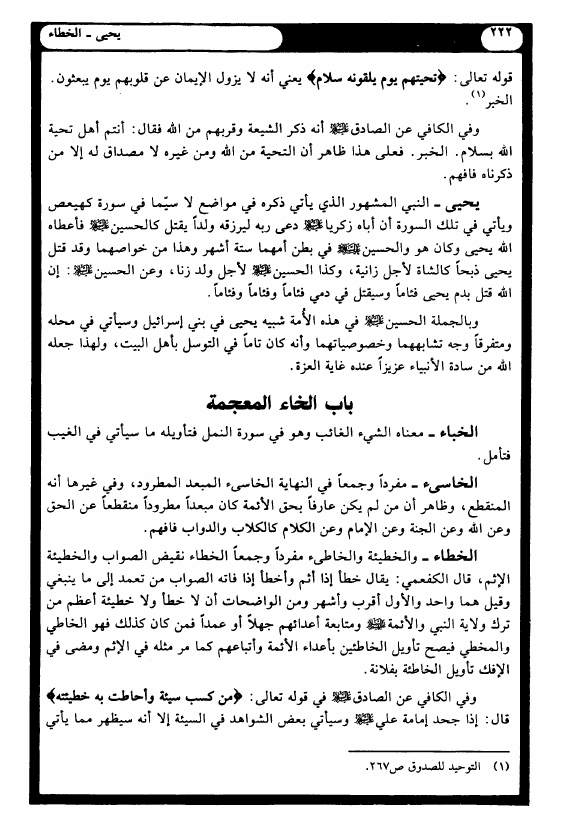 ٢٢٢
يحيى ـ الخطاء
قوله تعالى: ﴿تحيتهم يوم يلقونه سلام﴾ يعني أنه لا يزول الإيمان عن قلوبهم يوم يبعثون.
الخبر(١).
وفي الكافي عن الصادق عليه السلام أنه ذكر الشيعة وقربهم من الله فقال: أنتم أهل تحية
الله بسلام. الخبر. فعلى هذا ظاهر أن التحية من الله ومن غيره لا مصداق له إلا من
ذكرناه فافهم.
يحيى ـ النبي المشهور الذي يأتي ذكره في مواضع لا سيّما في سورة كهيعص
ويأتي في تلك السورة أن أباه زكريا عليه السلام دعى ربه ليرزقه ولداً يقتل كالحسين عليه السلام فأعطاه
الله يحيى وكان هو والحسين عليه السلام في بطن أمهما ستة أشهر وهذا من خواصهما وقد قتل
يحيى ذبحاً كالشاة لأجل زانية، وكذا الحسين عليه السلام لأجل ولد زنا، وعن الحسين عليه السلام: إن
الله قتل بدم يحيى فئاماً وسيقتل في دمي فئاماً وفئاماً وفئاماً.
وبالجملة الحسين عليه السلام في هذه الأمة شبيه يحيى في بني إسرائيل وسيأتي في محله
ومتفرقاً وجه تشابههما وخصوصياتهما وأنه كان تاماً في التوسل بأهل البيت، ولهذا جعله
الله من سادة الأنبياء عزيزاً عنده غاية العزة.
باب الخاء المعجمة
الخباء ـ معناه الشيء الغائب وهو في سورة النمل فتأويله ما سيأتي في الغيب
فتأمل.
الخاسىء ـ مفرداً وجمعاً في النهاية الخاسىء المبعد المطرود، وفي غيرها أنه
المنقطع، وظاهر أن من لم يكن عارفاً بحق الأئمة كان مبعداً مطروداً منقطعاً عن الحق
وعن الله وعن الجنة وعن الإمام وعن الكلام كالكلاب والدواب فافهم.
الخطاء ـ والخطيئة والخاطىء مفرداً وجمعاً الخطاء نقيض الصواب والخطيئة
الإثم، قال الكفعمي: يقال خطأ إذا أثم وأخطأ إذا فاته الصواب من تعمد إلى ما ينبغي
وقيل هما واحد والأول أقرب وأشهر ومن الواضحات أن لا خطأ ولا خطيئة أعظم من
ترك ولاية النبي والأئمة عليهم السلام ومتابعة أعدائهم جهلاً أو عمداً فمن كان كذلك فهو الخاطي
والمخطي فيصح تأويل الخاطئين بأعداء الأئمة وأتباعهم كما مر مثله في الإثم ومضى في
الإفك تأويل الخاطئة بفلانة.
وفي الكافي عن الصادق عليه السلام في قوله تعالى: ﴿من كسب سيئة وأحاطت به خطيئته﴾
قال: إذا جحد إمامة علي عليه السلام وسيأتي بعض الشواهد في السيئة إلا أنه سيظهر مما يأتي
(١) التوحيد للصدوق ص٢٦٧.